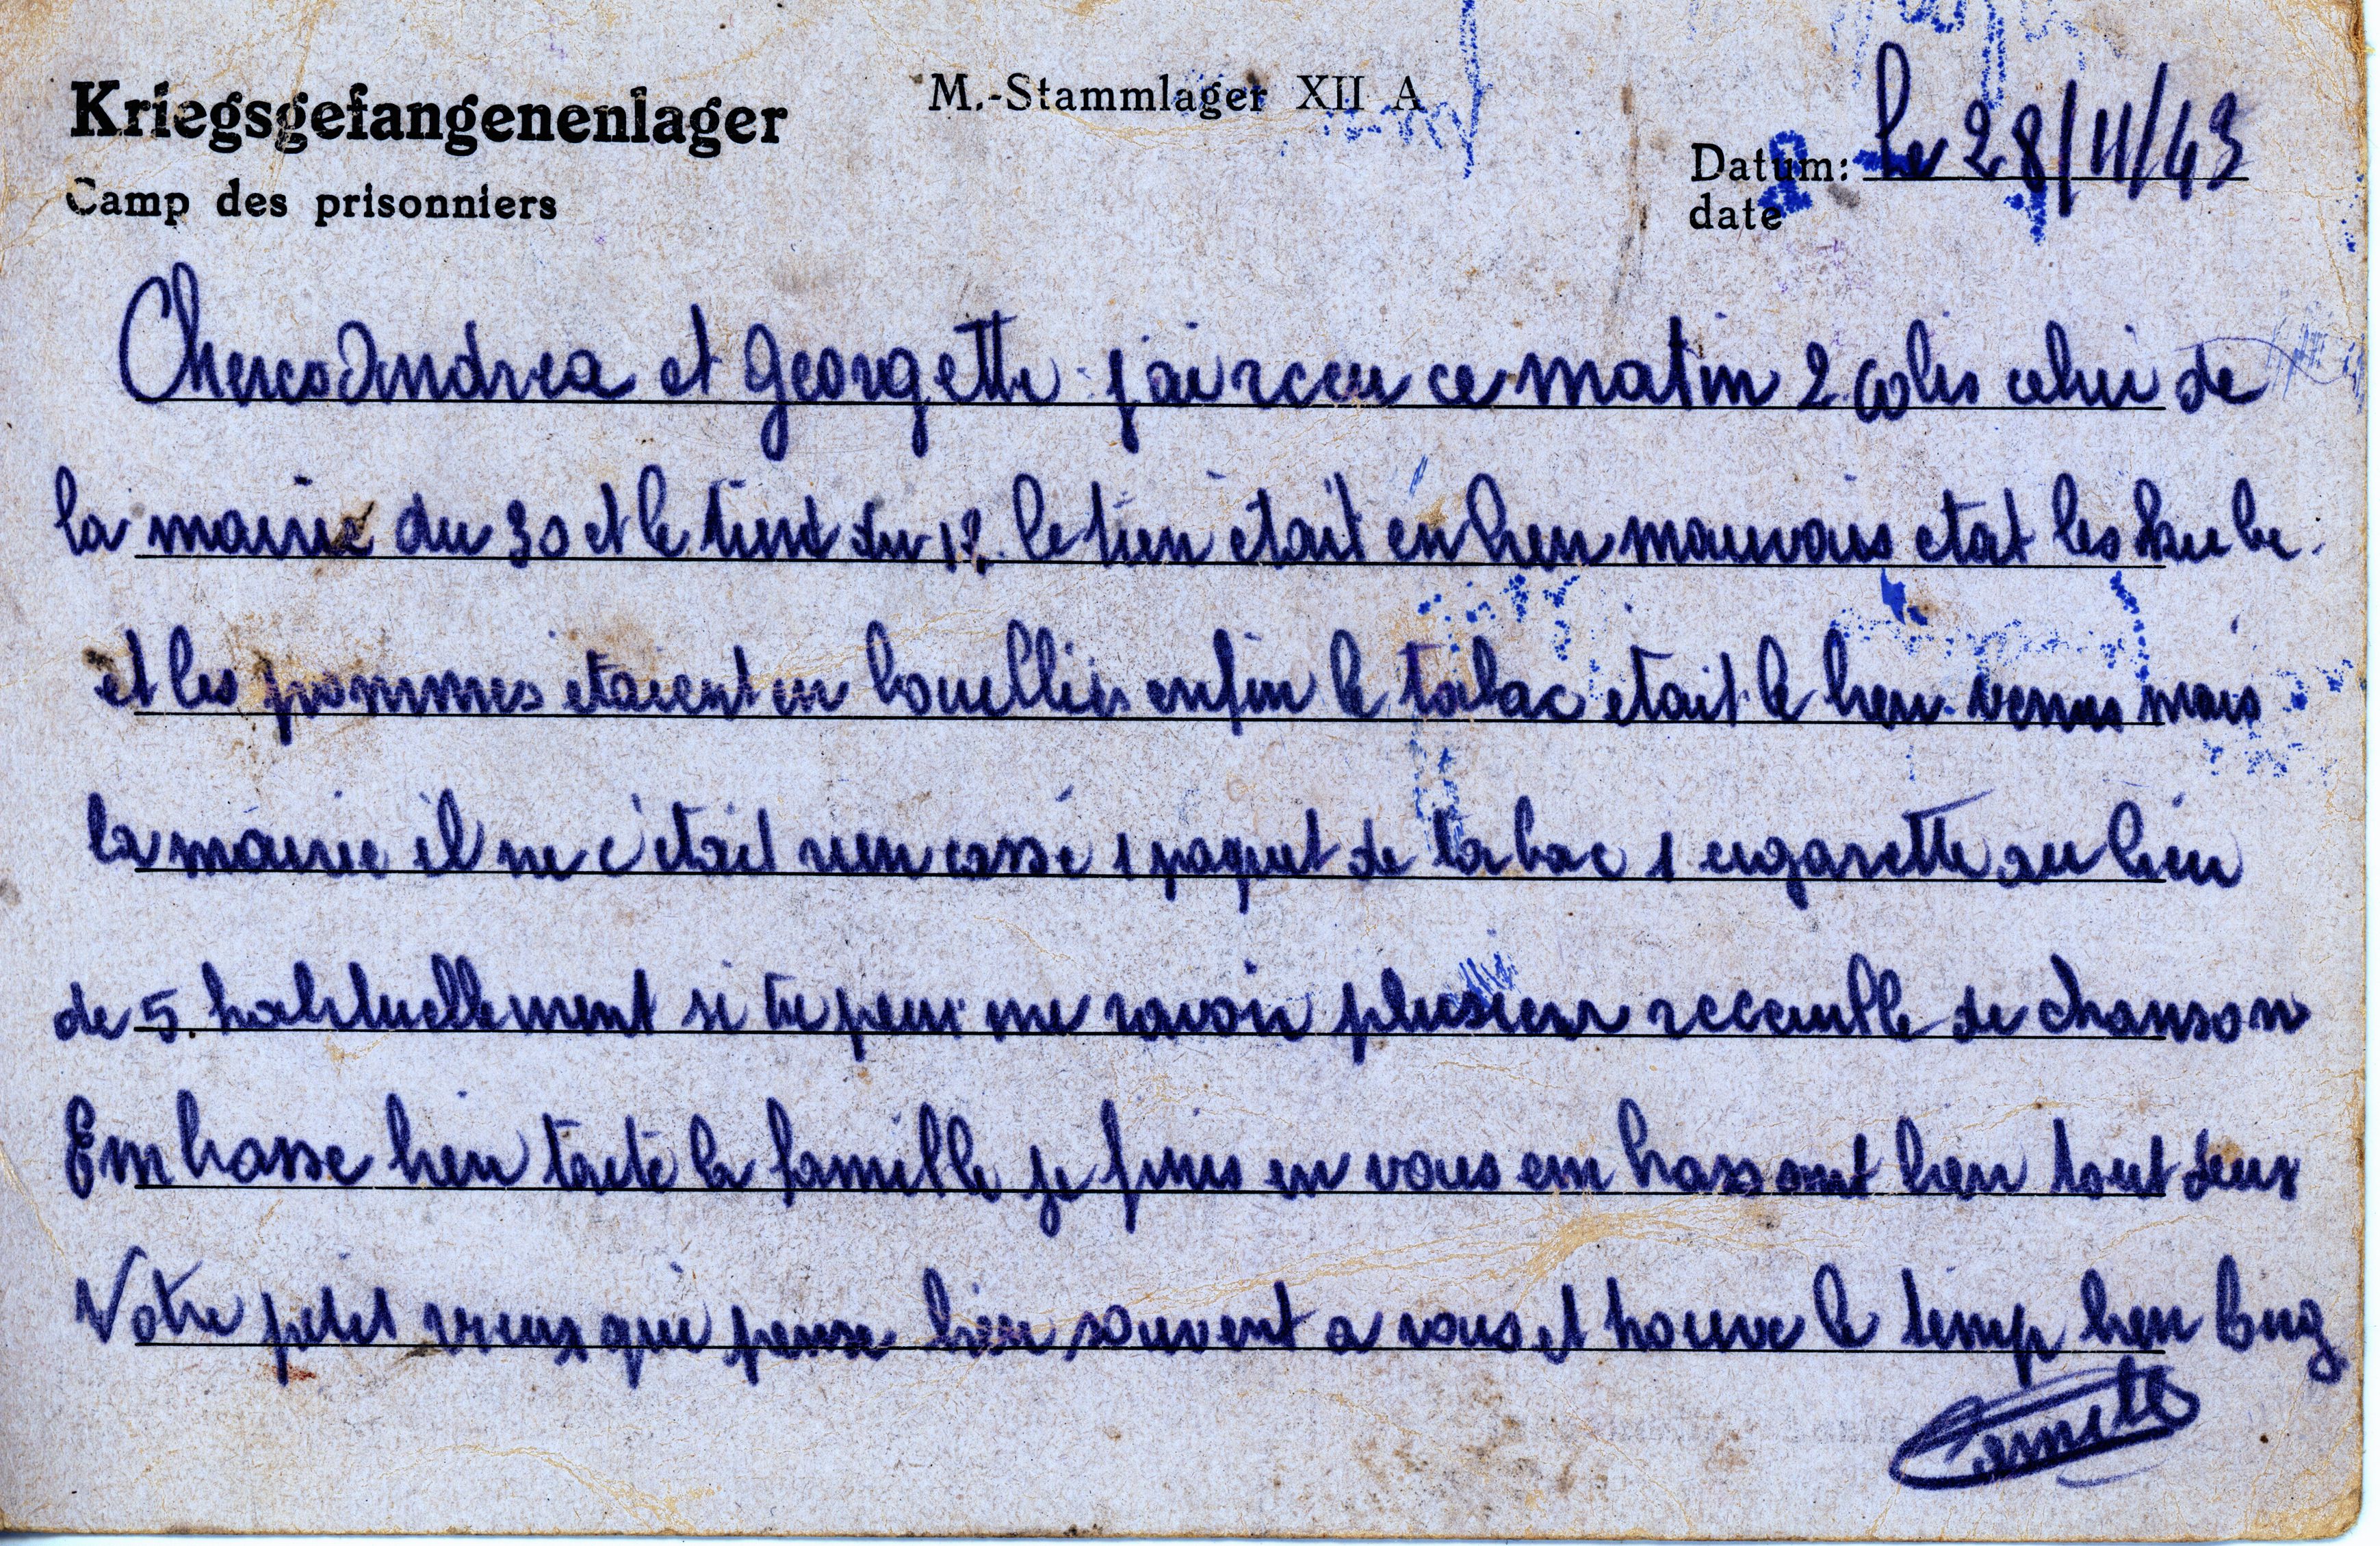 Kriegsgefangenenlager
M.-Stammlager XII A
Camp des prisonniers
Datum: le 28/11/43
date
Cheres Andrea et Georgette j'ai rceu ce matin 2 colis celui de
la mairie du 30 et le tient du 12. le tien était en bien mauvais etat les
et les pommes etaient en bouellies enfin le tabac etait le bien venus mais
la mairie il ne c'etait rien cassé 1 paquet de tabac 1 cigarette au lieu
de 5. habituellement si tu peux me ravoir plusieur receuille de chanson
Embrasse bien toute la famille je finis en vous embrassant bien tout deux
Votre petit vieux qui pense bien souvent a vous et trouve le temp bien long